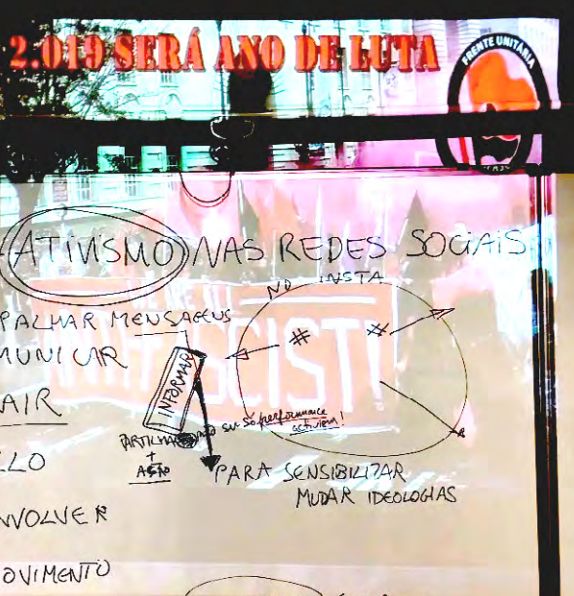 2.019 SERÁ ANO DE LUTA
FRENTE UNITÁRIA
ATIVISMO NAS REDES SOCIAIS
NO INSTA
PALHAR MENSAGENS
MUNICAR
# #
AIR
INFORMAR
CIST!
PARTILHAR
só performance
activism!
+
AÇÃO
LLO
PARA SENSIBILIZAR
MUDAR IDEOLOGIAS
NVOLVER
OVIMENTO